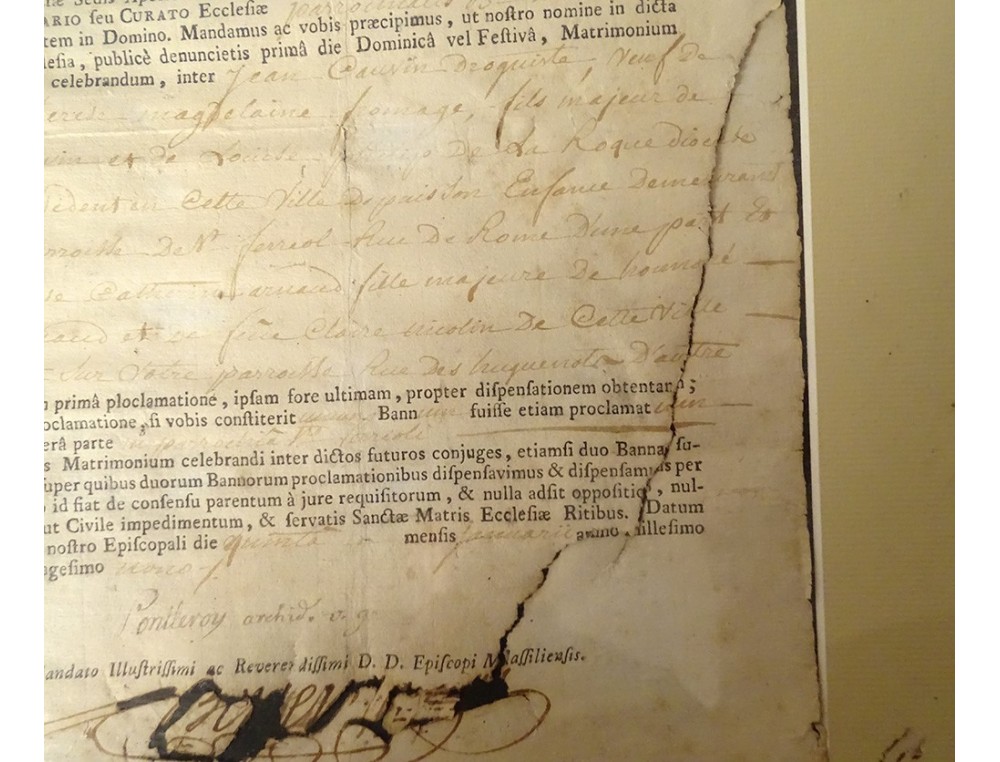 ARIO ſeu CURATO Eccleſiæ
tem in Domino. Mandamus ac vobis præcipimus, ut noſtro nomine in dicta
leſia, publicè denuncietis primâ die Dominicâ vel Feſtivâ, Matrimonium
celebrandum, inter Jean Cauvin Droguiste, Veuf de
magdelaine fromage, fils majeur de
et de Louise De La Roque diocese
Cette Ville Depuis son Enfance Demeurant
De St. ferreol Rue De Rome D'une part Et
arnaud fille majeure de honnoré
et de feüe Claire nicolin De Cette Ville
Sur Votre parroisse Rue des huguenots D'autre
primâ ploclamatione, ipſam fore ultimam, propter diſpenſationem obtentam;
oclamatione, ſi vobis conſtiterit Bann ſuiſſe etiam proclamat
erâ parte
s Matrimonium celebrandi inter dictos futuros conjuges, etiamſi duo Banna ſu-
uper quibus duorum Bannorum proclamationibus diſpenſavimus & diſpenſamus per
id fiat de conſenſu parentum à jure requiſitorum, & nulla adſit oppoſitio, nul-
ut Civile impedimentum, & ſervatis Sanctæ Matris Eccleſiæ Ritibus. Datum
noſtro Epiſcopali die quinta menſis Januarii anno milleſimo
ageſimo nono
archid. v. g.
andato Illuſtriſſimi ac Reverendiſſimi D. D. Epiſcopi Maſſilienſis.